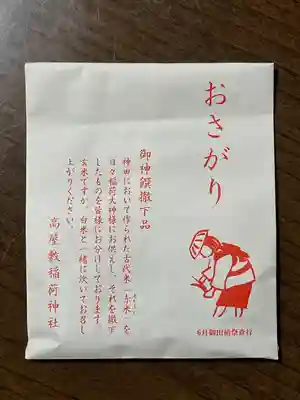 おさがり
御神饌撤下品
神田において作られた古代米「赤米」を
日々稲荷大神様にお供えし、それを撤下
したものを皆様にお分けしております。
玄米ですが、白米と一緒に炊いてお召し
上がりください。
高屋敷稲荷神社
6月御田植祭斎行